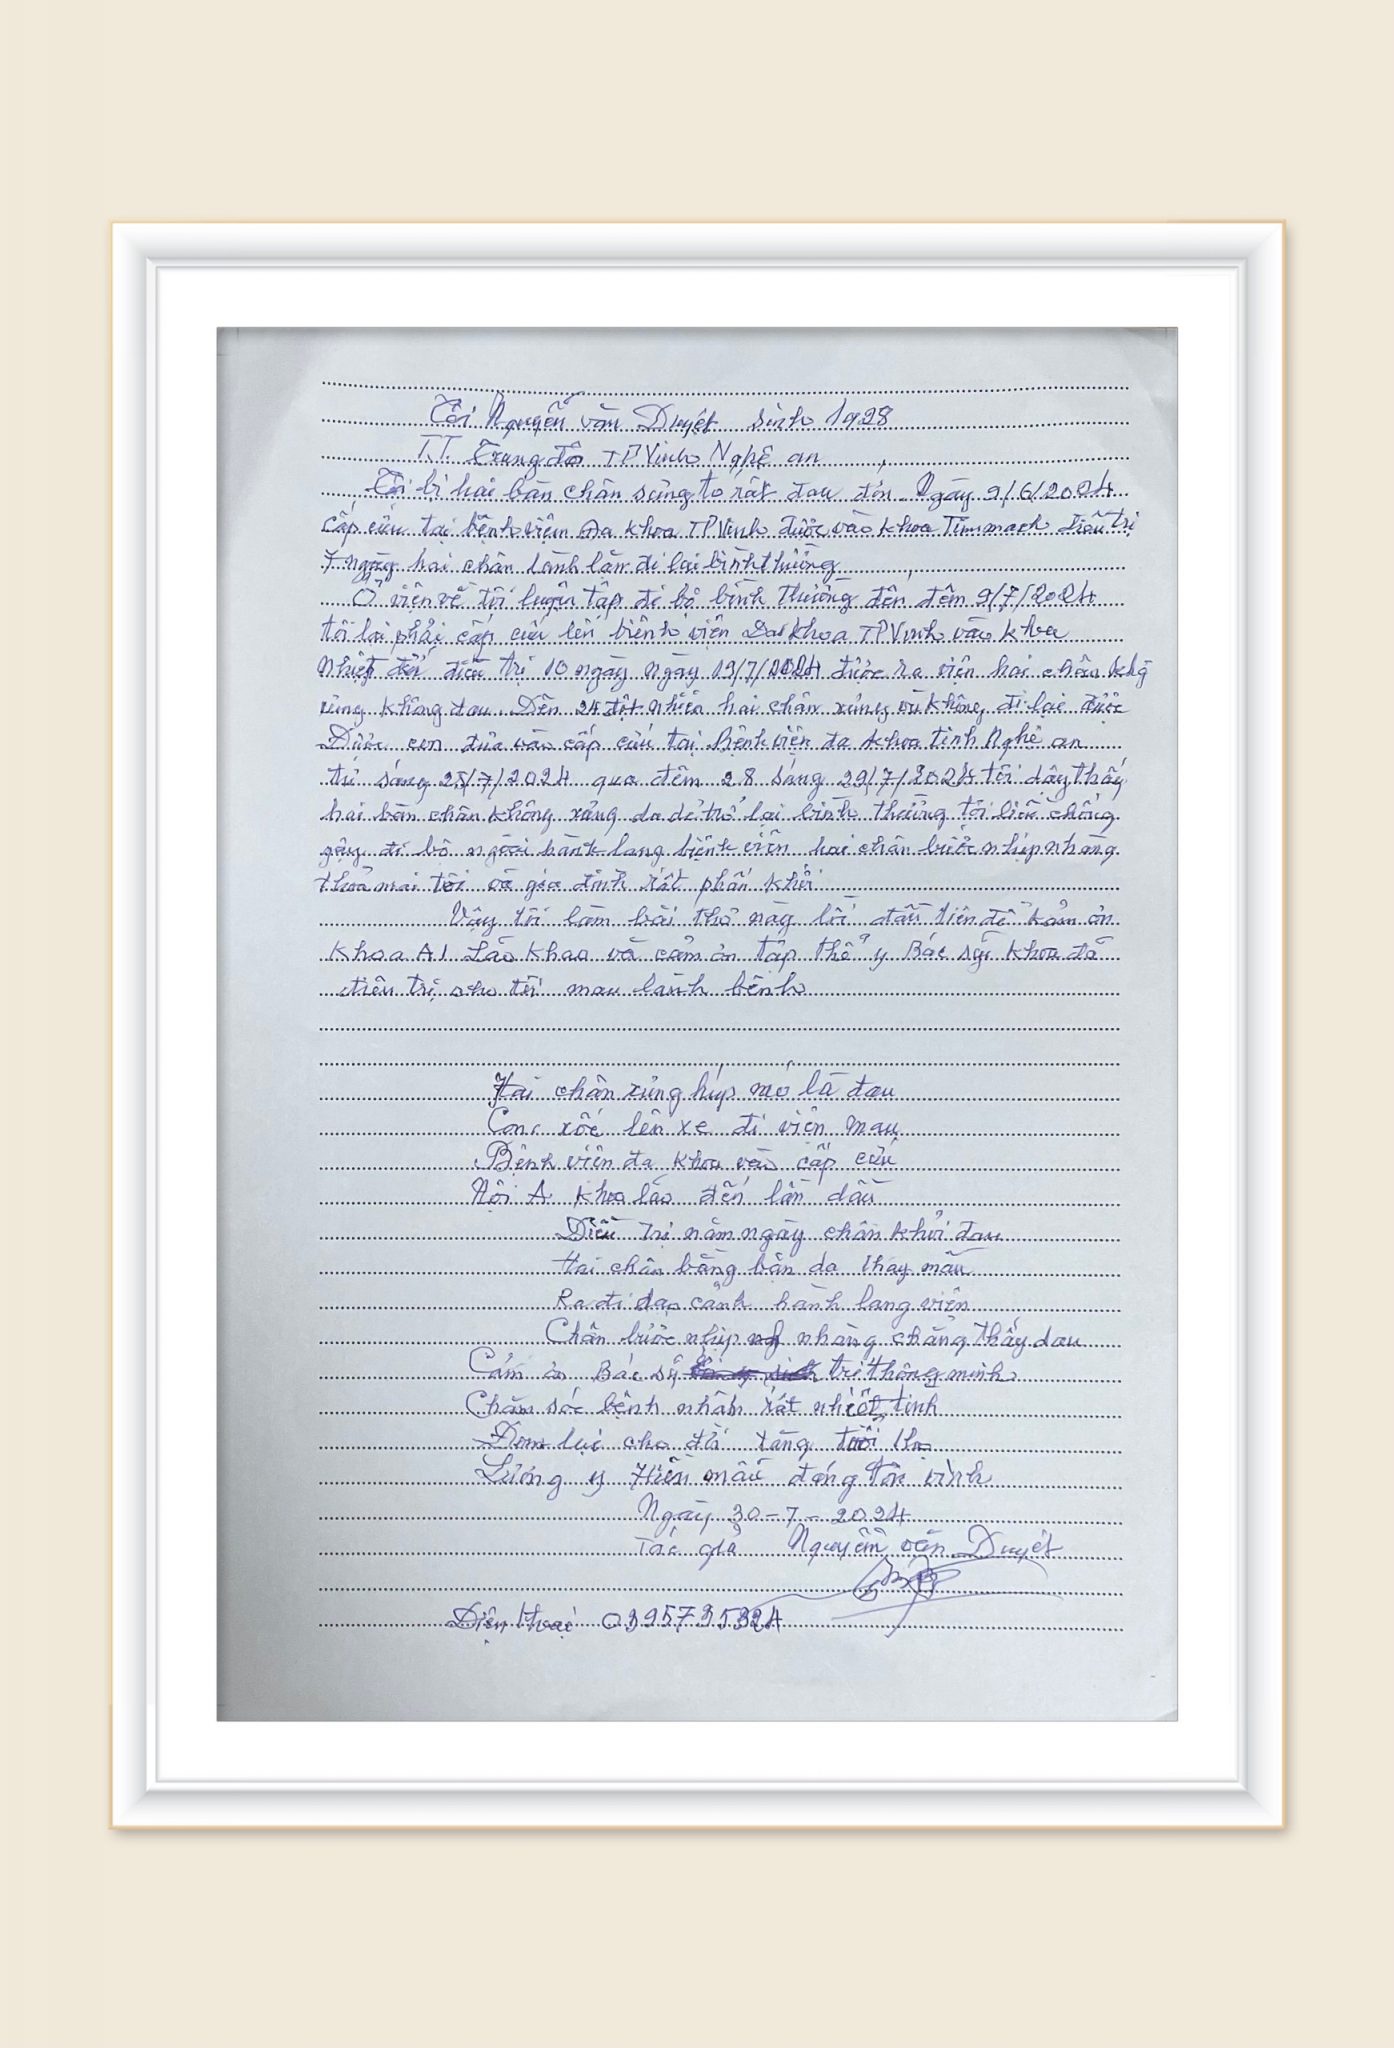 Tôi Nguyễn văn Duyệt sinh 1928
T.T. Trung đô TP Vinh Nghệ an
Tôi bị hai bàn chân sưng to rất đau đớn. Ngày 9/6/2024
cấp cứu tại bệnh viện Đa khoa TP Vinh được vào khoa Tim mạch điều trị
7 ngày hai chân lành lặn đi lại bình thường
Ở viện về tôi luyện tập đi bộ bình thường đến đêm 9/7/2024
tôi lại phải cấp cứu lên bệnh viện Đa khoa TP Vinh vào khoa
Nhiệt đới điều trị 10 ngày ngày 19/7/2024 được ra viện hai chân khg
xưng không đau. Đến 24 đột nhiên hai chân xưng và không đi lại được
Được con đưa vào cấp cứu tại Bệnh viện đa khoa tỉnh Nghệ an
từ sáng 25/7/2024 qua đêm 28 sáng 29/7/2024 tôi dậy thấy
hai bàn chân không xưng da dẻ trở lại bình thường tôi liền chống
gậy đi bộ ngoài hành lang bệnh viện hai chân bước nhịp nhàng
thoả mái tôi và gia đình rất phấn khởi
Vậy tôi làm bài thơ này lời đầu tiên để cảm ơn
khoa A1 Lão khoa và cảm ơn tập thể y Bác sỹ khoa đã
điều trị cho tôi mau lành bệnh
Hai chân xưng húp mó là đau
Con xốc lên xe đi viện mau
Bệnh viện đa khoa vào cấp cứu
Nội A khoa lão đến lần đầu
Điều trị năm ngày chân khỏi đau
Hai chân bằng bặn da thay mầu
Ra đi dạo cảnh hành lang viện
Chân bước nhịp nhàng chẳng thấy đau
Cảm ơn Bác sỹ trí thông minh
Chăm sóc bệnh nhân rất nhiệt tình
Đem lại cho đời tăng tuổi thọ
Lương y Hiền mẫu đáng tôn vinh
Ngày 30-7-2024
Tác giả Nguyễn văn Duyệt
Điện thoại 0395735324